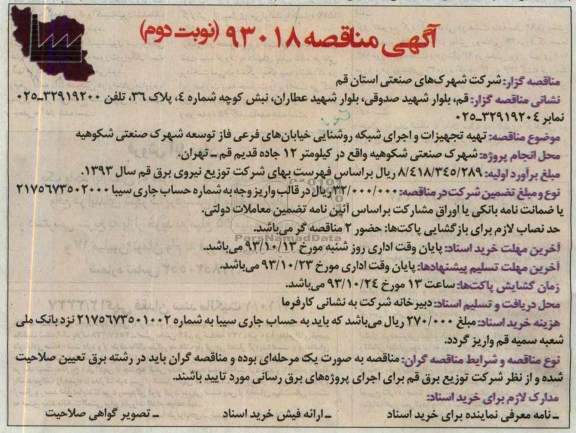 آگهی مناقصه ۹۳۰۱۸ (نوبت دوم)
مناقصه گزار: شرکت شهرک‌های صنعتی استان قم
نشانی مناقصه گزار: قم، بلوار شهید صدوقی، بلوار شهید عطاران، نبش کوچه شماره ٤، پلاک ۳۶، تلفن ۳۲۹۱۹۲۰۰-۰۲۵
نمابر ۳۲۹۱۹۲۰٤-۰۲۵
موضوع مناقصه: تهیه تجهیزات و اجرای شبکه روشنایی خیابان‌های فرعی فاز توسعه شهرک صنعتی شکوهیه
محل انجام پروژه: شهرک صنعتی شکوهیه واقع در کیلومتر ۱۲ جاده قدیم قم ـ تهران.
مبلغ برآورد اولیه: ۸/٤۱۸/۳٤۵/۲۸۹ ریال براساس فهرست بهای شرکت توزیع نیروی برق قم سال ۱۳۹۳.
نوع و مبلغ تضمین شرکت در مناقصه: ۳۲۰/۰۰۰/۰۰۰ ریال در قالب واریز وجه به شماره حساب جاری سیبا ۲۱۷۵۶۷۳۵۰۲۰۰۰
یا ضمانت نامه بانکی یا اوراق مشارکت براساس آئین نامه تضمین معاملات دولتی.
حد نصاب لازم برای بازگشایی پاکت‌ها: حضور ۲ مناقصه گر می‌باشد.
ParsNamadData
آخرین مهلت خرید اسناد: پایان وقت اداری روز شنبه مورخ ۹۳/۱۰/۱۳ می‌باشد.
آخرین مهلت تسلیم پیشنهادها: پایان وقت اداری مورخ ۹۳/۱۰/۲۳ می‌باشد.
زمان گشایش پاکت‌ها: ساعت ۱۳ مورخ ۹۳/۱۰/۲٤ می‌باشد.
محل دریافت و تسلیم اسناد: دبیرخانه شرکت به نشانی کارفرما
هزینه خرید اسناد: مبلغ ۲۷۰/۰۰۰ ریال می‌باشد که باید به حساب جاری سیبا به شماره ۲۱۷۵۶۷۳۵۰۱۰۰۲ نزد بانک ملی
شعبه سمیه قم واریز گردد.
نوع مناقصه و شرایط مناقصه گران: مناقصه به صورت یک مرحله‌ای بوده و مناقصه گران باید در رشته برق تعیین صلاحیت
شده و از نظر شرکت توزیع برق قم برای اجرای پروژه‌های برق رسانی مورد تایید باشند.
مدارک لازم برای خرید اسناد:
ـ نامه معرفی نماینده برای خرید اسناد ـ ارائه فیش خرید اسناد ـ تصویر گواهی صلاحیت